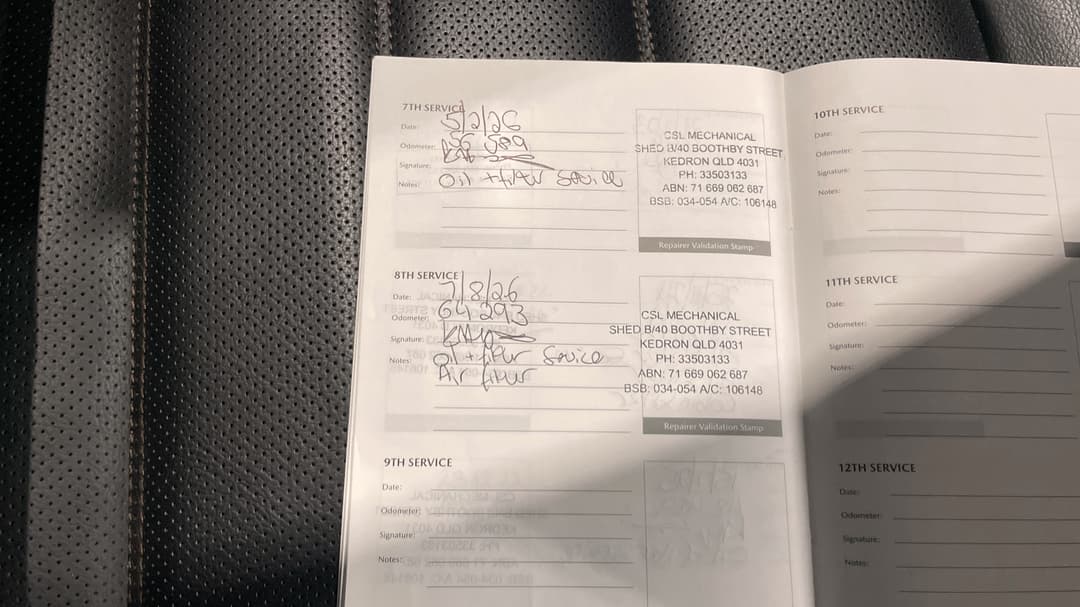 7TH SERVICE
Date: 5/2/26
Odometer: 56 589
Signature:
Notes: Oil + filter Service
CSL MECHANICAL
SHED B/40 BOOTHBY STREET
KEDRON QLD 4031
PH: 33503133
ABN: 71 669 062 687
BSB: 034-054 A/C: 106148
Repairer Validation Stamp
8TH SERVICE
Date: 7/8/26
Odometer: 64 293
Signature:
Notes: Oil + filter Service
Air filter
CSL MECHANICAL
SHED B/40 BOOTHBY STREET
KEDRON QLD 4031
PH: 33503133
ABN: 71 669 062 687
BSB: 034-054 A/C: 106148
Repairer Validation Stamp
9TH SERVICE
Date:
Odometer:
Signature:
Notes:
10TH SERVICE
Date:
Odometer:
Signature:
Notes:
11TH SERVICE
Date:
Odometer:
Signature:
Notes:
12TH SERVICE
Date:
Odometer:
Signature:
Notes: